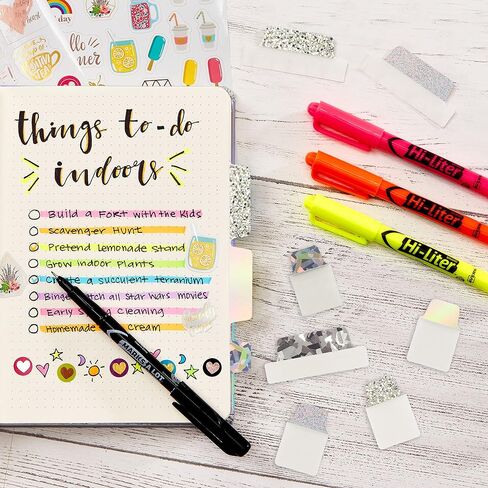 day
things to-do
indoors
Build a Fort with the Kids
Scavenger Hunt
Pretend lemonade stand
Grow indoor plants
Create a succulent terranium
Binge watch all Star Wars movies
Early Spring cleaning
Homemade cream
MARKS-A-LOT
Hi-Liter
Hi-Liter
Hi-Liter